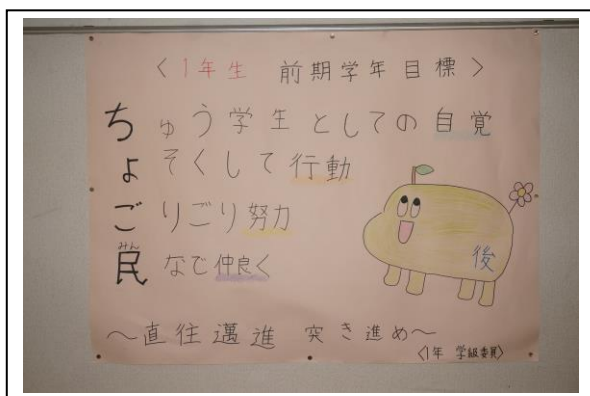 〈1年生 前期学年目標〉
ちゅう学生としての自覚
よそくして行動
ごりごり努力
みん
民なで仲良く
後
～直往邁進 突き進め～
〈1年 学級委員〉